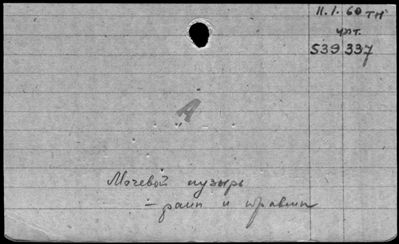 11.1.60 тм
чит.
539 337
А
Мочевой пузырь
– раны и травмы